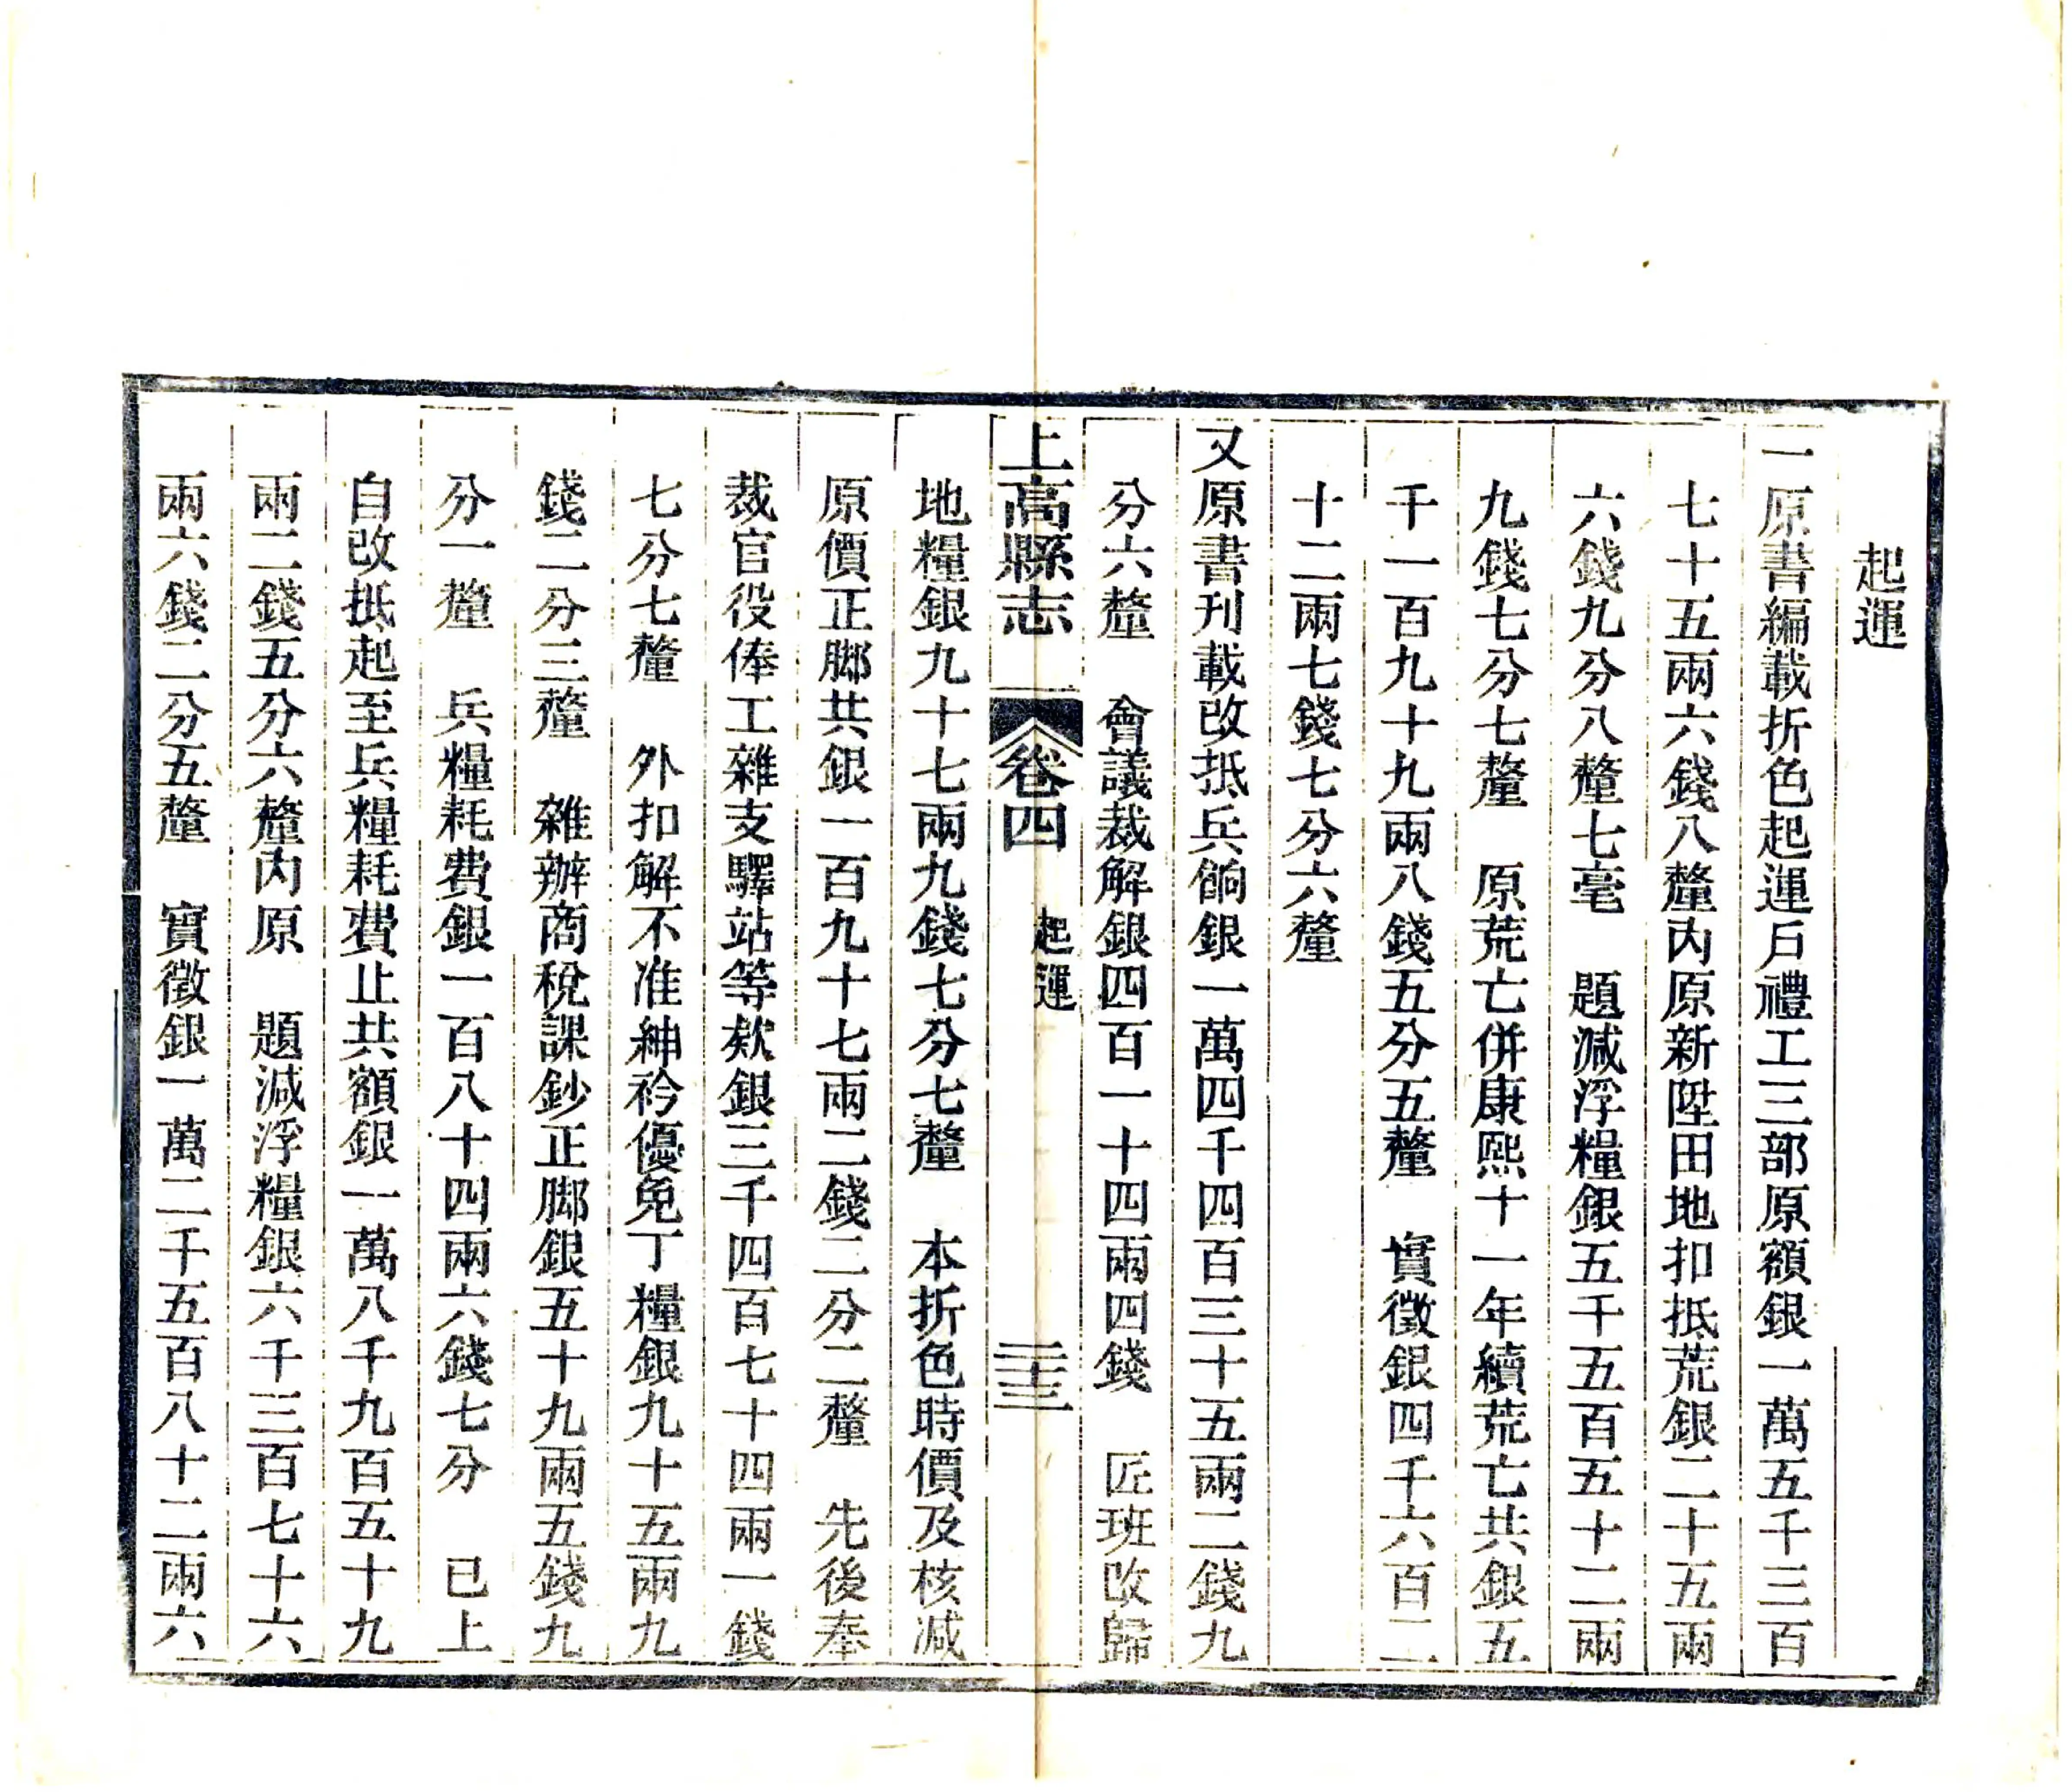 起運
一原書編載折色起運戶禮工三部原額銀一萬五千三百
七十五兩六錢八釐內原新陞田地扣抵荒銀二十五兩
六錢九分八釐七毫　題減浮糧銀五千五百五十二兩
九錢七分七釐　原荒亡併康熙十一年續荒亡共銀五
千一百九十九兩八錢五分五釐　實徵銀四千六百二
十二兩七錢七分六釐
又原書刊載改抵兵餉銀一萬四千四百三十五兩二錢九
分六釐　會議裁解銀四百一十四兩四錢　匠班改歸
上高縣志　卷四　起運　二十三
地糧銀九十七兩九錢七分七釐　本折色時價及核減
原價正脚共銀一百九十七兩二錢二分二釐　先後奉
裁官役俸工雜支驛站等欵銀三千四百七十四兩一錢
七分七釐　外扣解不准紳衿優免丁糧銀九十五兩九
錢二分三釐　雜辦商稅課鈔正脚銀五十九兩五錢九
分一釐　兵糧耗費銀一百八十四兩六錢七分　已上
自改抵起至兵糧耗費止共額銀一萬八千九百五十九
兩二錢五分六釐內原　題減浮糧銀六千三百七十六
兩六錢二分五釐　實徵銀一萬二千五百八十二兩六